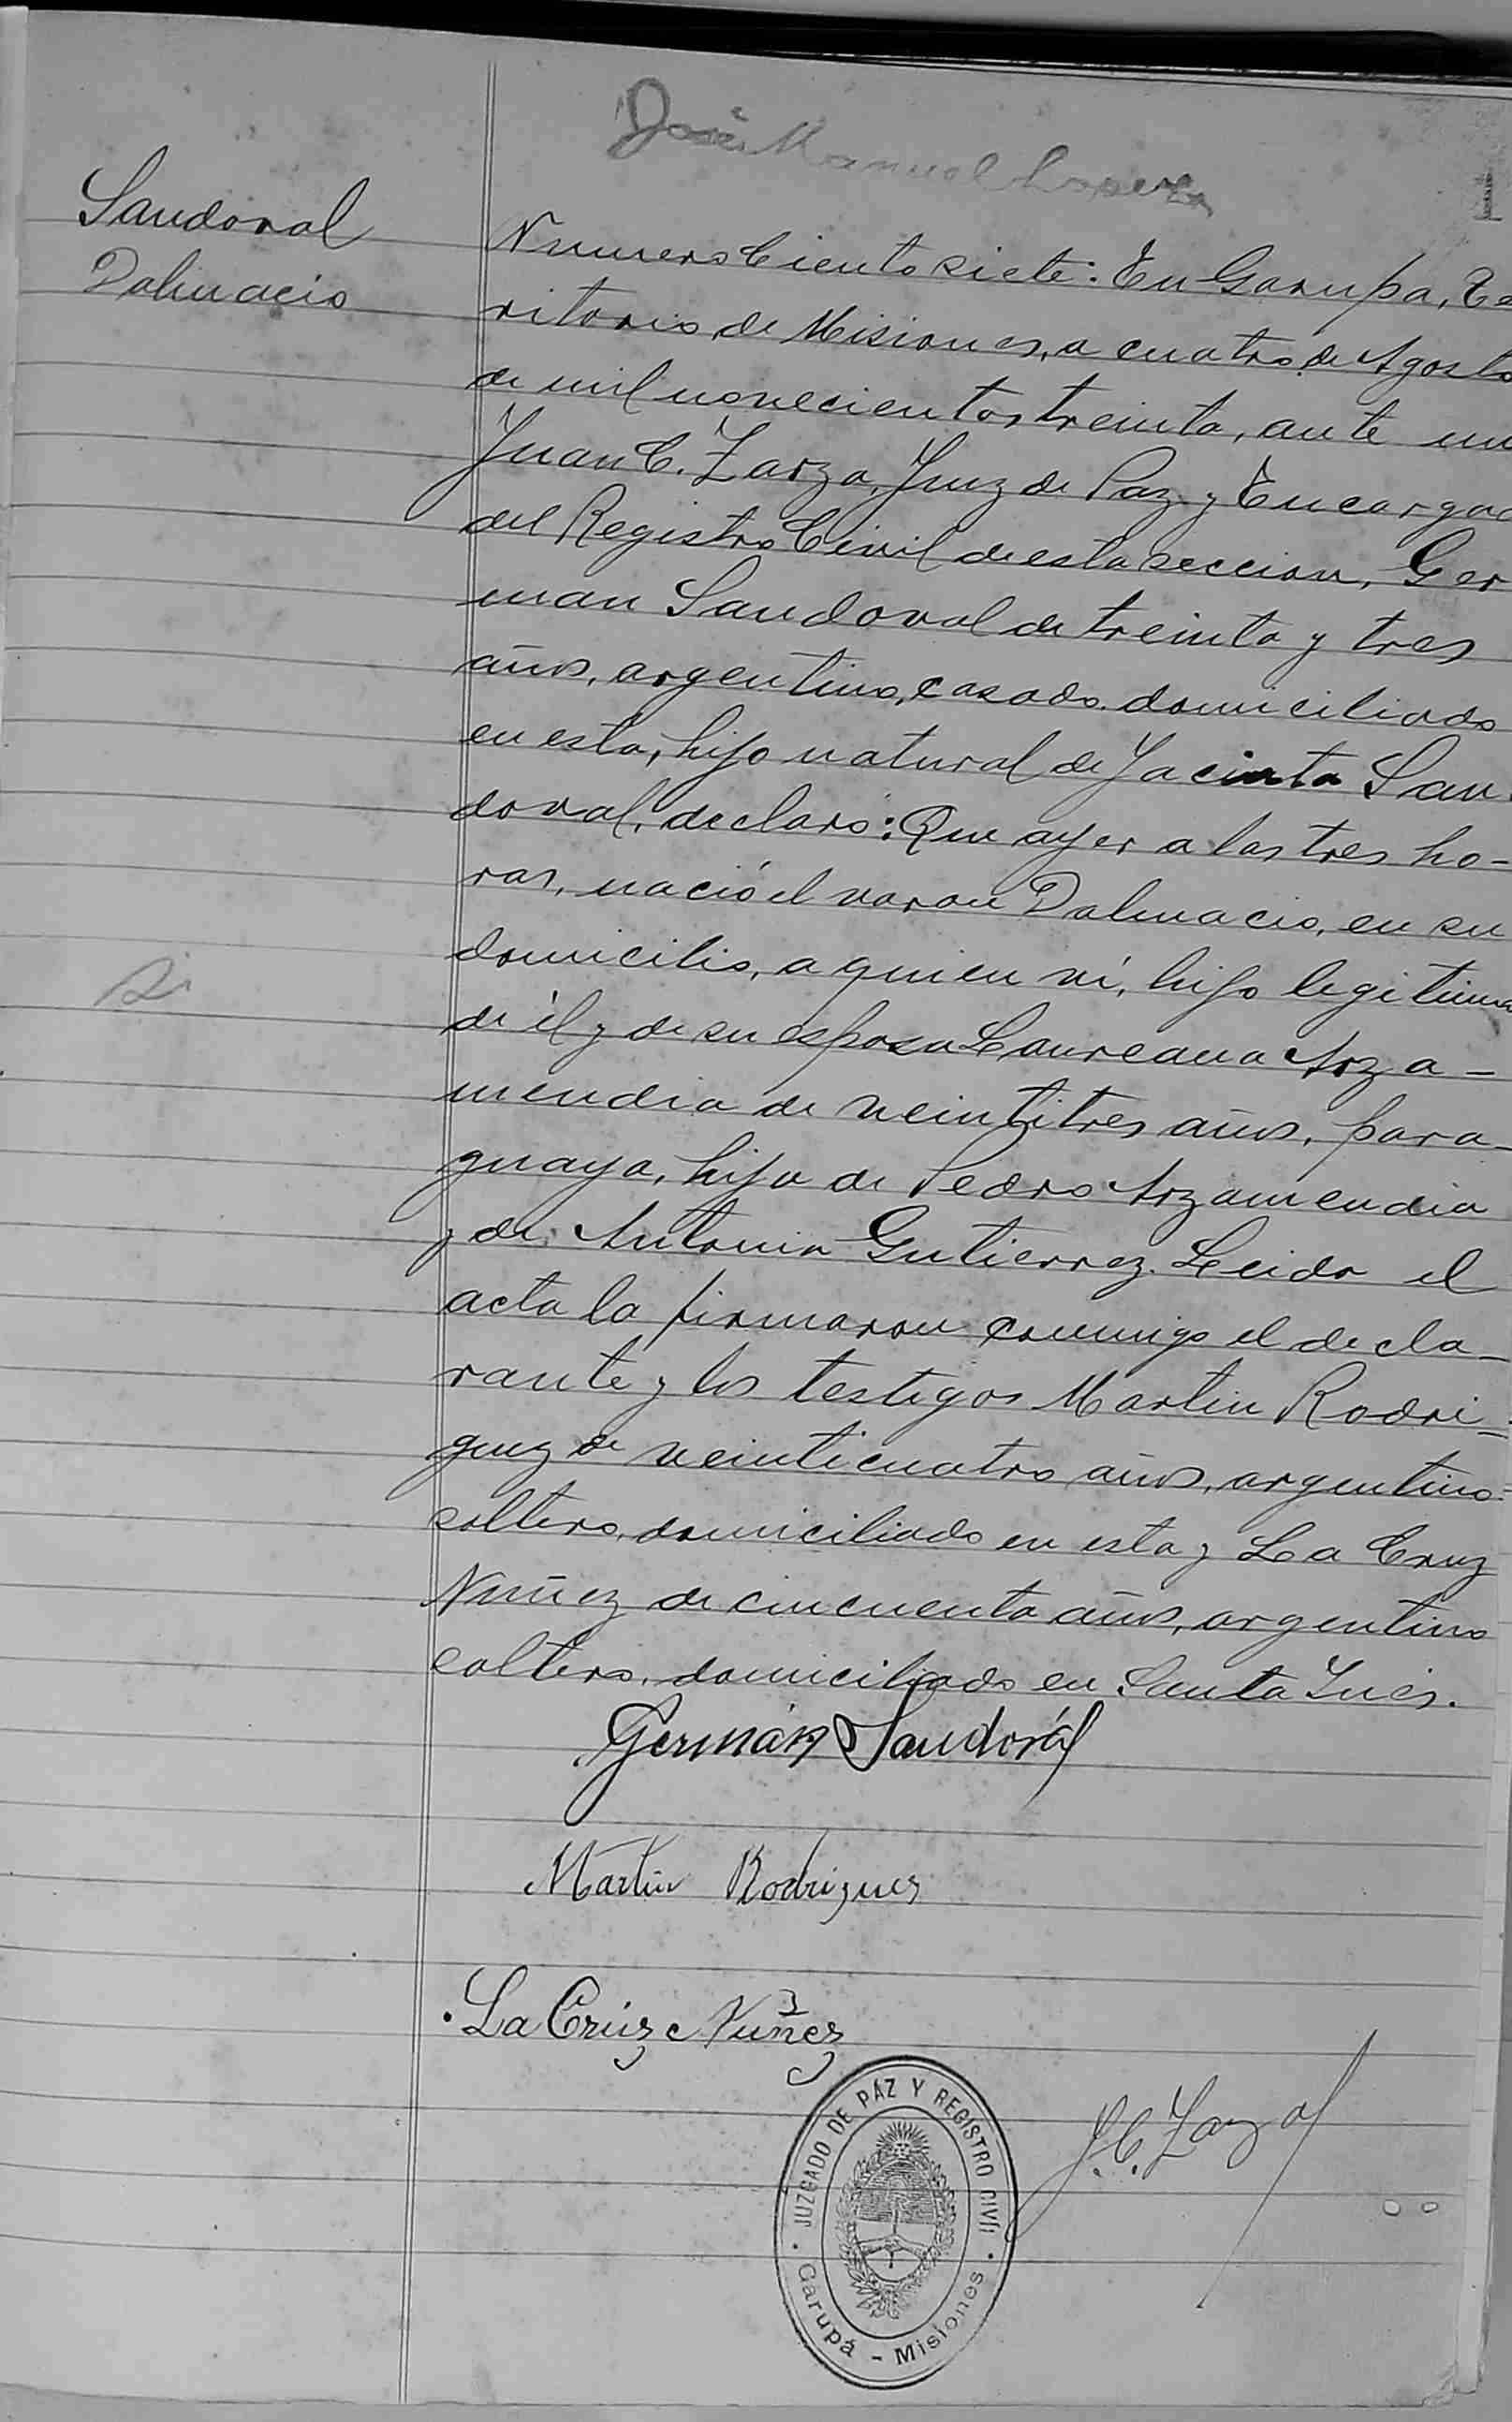 José Manuel
Sandoval
Dalmacio
Numero Ciento siete: En Garupa, Te
ritorio de Misiones, a cuatro de Agosto
de mil novecientos treinta, ante mi
Juan C. Zarza, Juez de Paz y Encargad
del Registro Civil de esta seccion, Ger
man Sandoval de treinta y tres
años, argentino, casado, domiciliado
en esta, hijo natural de Jacinta San
doval, declaro: Que ayer a las tres ho-
ras, nació el varon Dalmacio, en su
domicilio, a quien ví, hijo legitimo
de él y de su esposa Laureana Arza-
mendia de veintitres años, para-
guaya, hija de Pedro Arzamendia
y de Antonia Gutierrez. Leida el
acta la firmaron conmigo el decla-
rante y los testigos Martin Rodri-
guez de veinticuatro años, argentino
soltero, domiciliado en esta y La Cruz
Nuñez de cincuenta años, argentino
soltero, domiciliado en Santa Inés.
Germán Sandovál
Martin Rodriguez
La Crúz Nuñez
J. C. Zarza
JUZGADO DE PAZ Y REGISTRO CIVIL
Garupá - Misiones